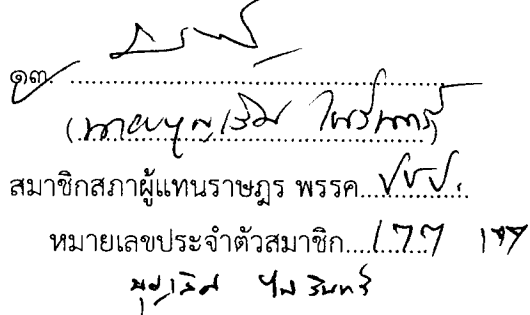 ๑๓. ........................................
(นายบุญเริ่ม ไพรินทร์)
สมาชิกสภาผู้แทนราษฎร พรรค...ปชป.
หมายเลขประจำตัวสมาชิก....177 197
บุญเริ่ม ไพรินทร์